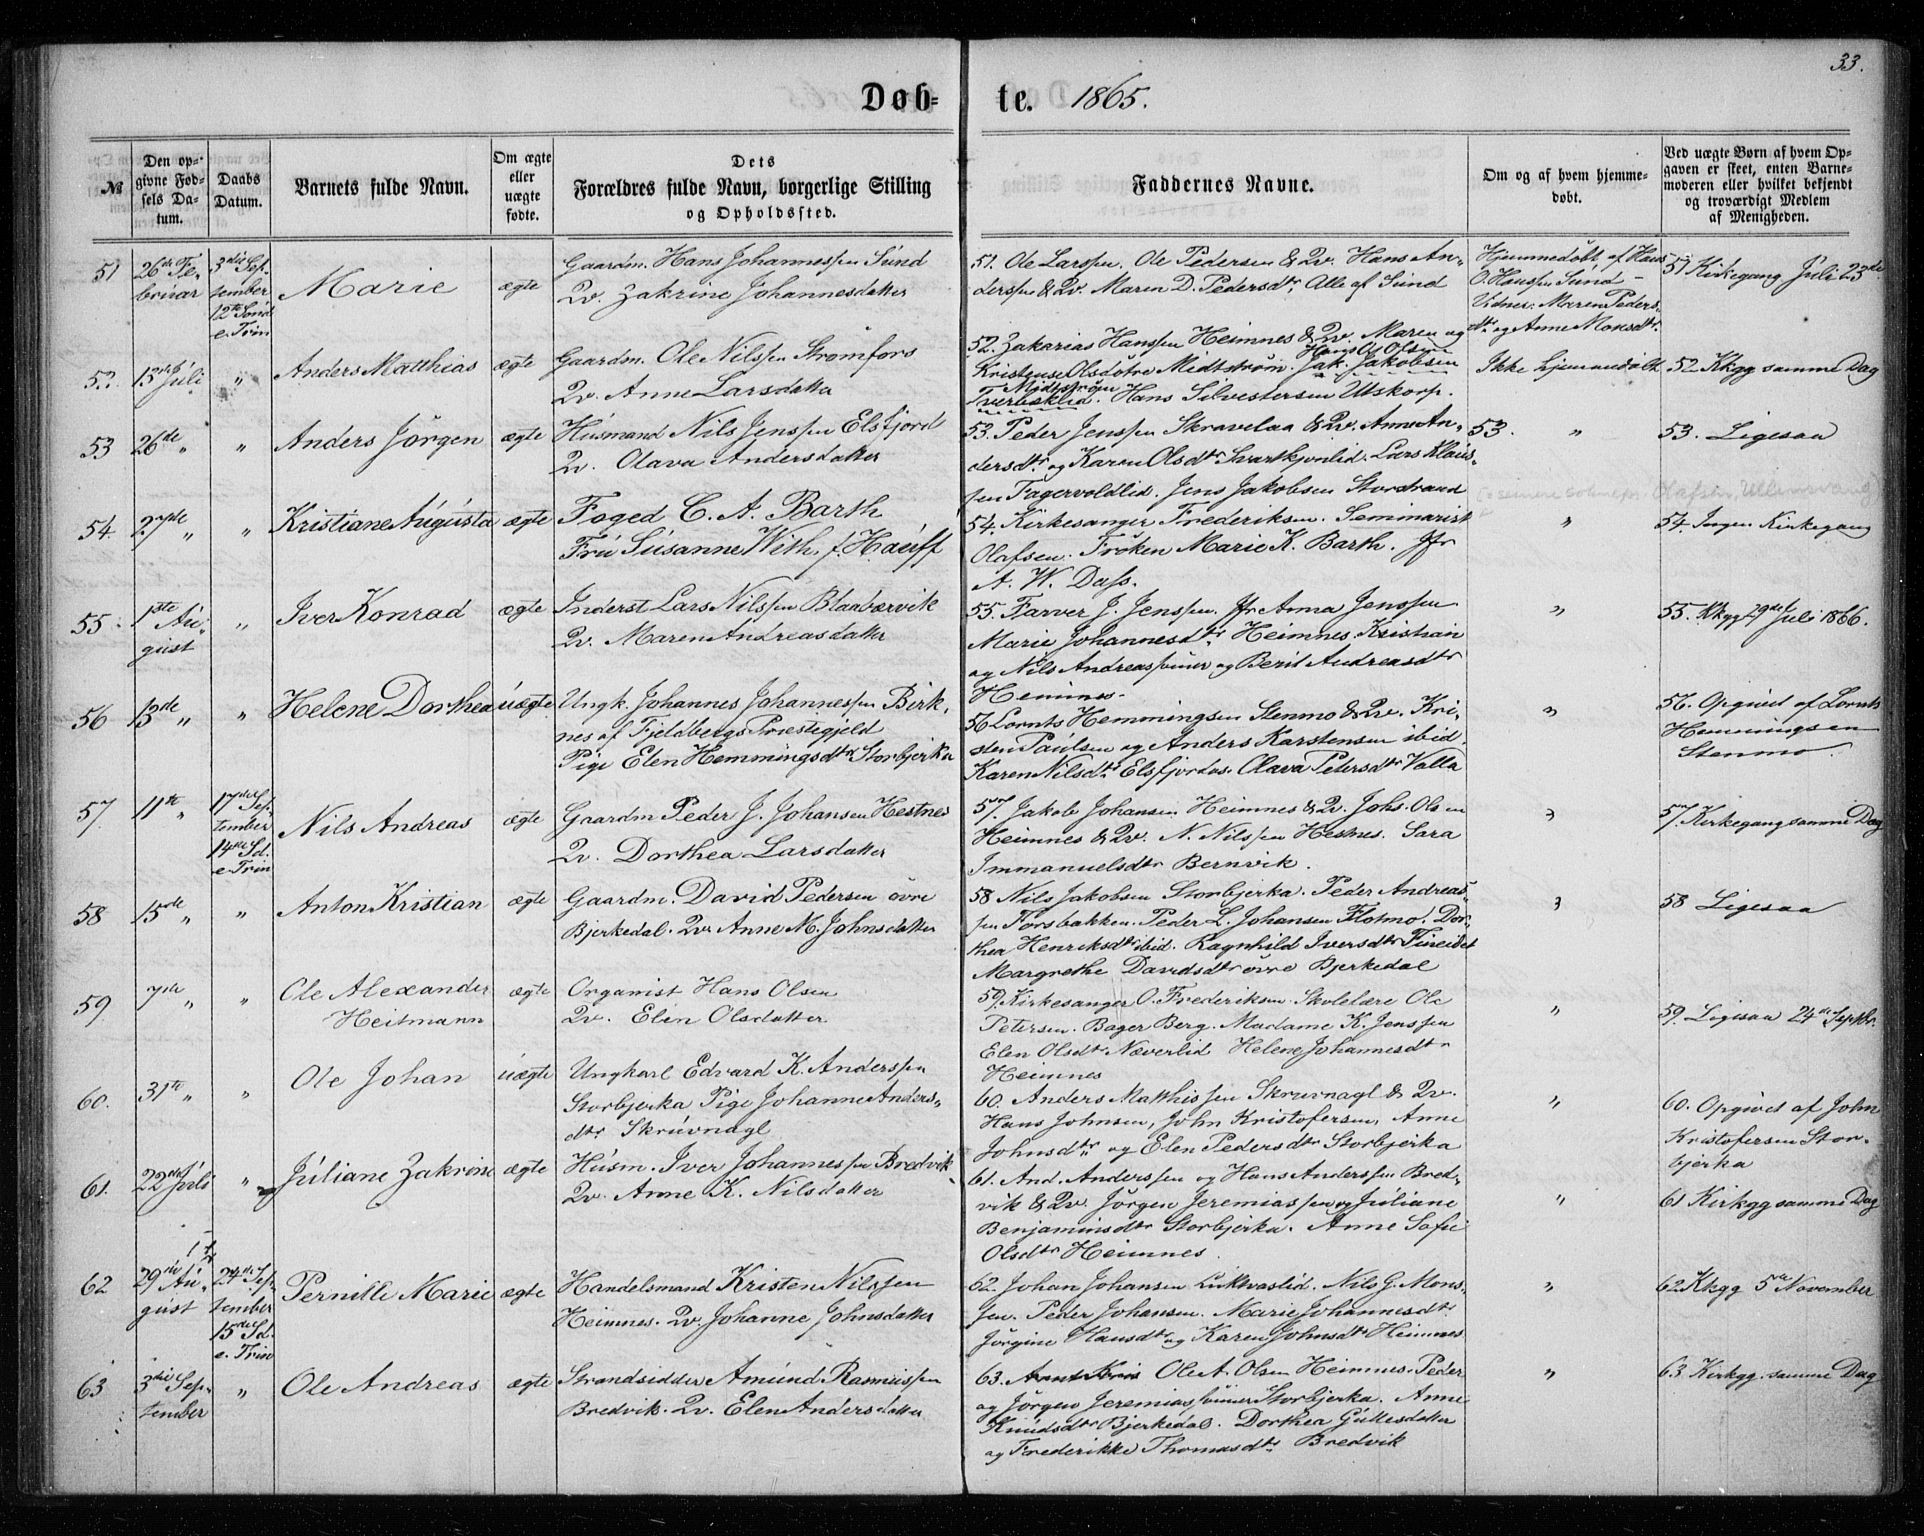 33.
Döb= te. 1865.
№
Den op=
givne Fød=
sels Da=
tum.
Daabs
Datum.
Barnets fulde Navn.
Om ægte
eller
uægte
fødte.
Dets
Forældres fulde Navn, borgerlige Stilling
og Opholdssted.
Faddernes Navne.
Om og af hvem hjemme=
døbt.
Ved uægte Børn af hvem Op=
gaven er skeet, enten Barne=
moderen eller hvilket bekjendt
og troværdigt Medlem
af Menigheden.
51
26de Fe-
bruar
3die Sep-
tember
12te Sönd
e. Trin
Marie
ægte
Gaardm. Hans Johannessen Sund
Qv. Zakrine Johannesdatter
51. Ole Larssen. Ole Pedersen & Qv. Hans An-
derssen & Qv. Maren D. Pedersdtr. Alle af Sund
Hjemmedöbt af Hans
O. Hanssen Sund -
Vidner: Maren Peders-
dtr. og Anne Monsdtr.
51 Kirkegang Juli 23de
52.
13de Juli
"
Anders Matthias
ægte
Gaardm. Ole Nilssen Strømfors
Qv. Anne Larsdatter
52. Zakarias Hanssen Heimnes & Qv. Maren og
Kristense Olsdötre Midtström. Jak. Jakobsen
Hans O. Olsen
Midtström
Tverbæklid. Hans Silvestersen Utskarp.
Ikke hjemmedöbt
52 Kkgg samme Dag
53
26de "
"
Anders Jörgen
ægte
Husmand Nils Jenssen Elsfjord
Qv. Olava Andersdatter
53. Peder Jenssen Skravelaa & Qv. Anne An-
dersdtr og Karen Olsdtr Svartkjønlid. Lars Klaus-
sen Fagervoldlid. Jens Jakobsen Storstrand
53. "
53. Ligesaa
54
27de "
"
Kristiane Augusta
ægte
Foged C. A. Barth
Fru Susanne With. f. Hauff
54. Kirkesanger Frederiksen. Seminarist
Olafsen. Fröken Marie K. Barth. Jfr
A. W. Dass.
"
54. Ingen Kirkegang
55.
1ste Au-
gust
"
Iver Konrad
ægte
Inderst Lars Nilssen Blaabærvik
Qv. Maren Andreasdatter
55. Farver J. Jenssen. Jfr Anna Jenssen
Marie Johannesdtr Heimnes. Kristian
og Nils Andreassönner og Berit Andreasdtr
Hemnes.
"
55. Kkgg 29de Juli 1866.
56
13de "
"
Helene Dorthea
uægte
Ungk. Johannes Johannessen Birk-
nes af Fjeldbergs Præstegjeld
Pige Elen Hemmingsdtr Storbjerka
56 Lornts Hemmingsen Stenmo & Qv. Kri-
sten Paulsen og Anders Karstensen ibid.
Karen Nilsdtr Elsfjordos. Olava Petersdtr Valla
"
56. Opgivet af Lornts
Hemmingsen
Stenmo.
57.
11te "
17de Sep-
tember
14de Sd.
e. Trin
Nils Andreas
ægte
Gaardm Peder J. Johansen Hestnes
Qv. Dorthea Larsdatter
57. Jakob Johansen Heimnes & Qv. Johs. Olsen
Heimnes & Qv. N. Nilssen Hestnes. Sara
Immanuelsdtr Bernvik.
"
57. Kirkegang samme Dag
58
15de "
"
Anton Kristian
ægte
Gaardm. David Pedersen övre
Bjerkedal. Qv. Anne M. Johnsdatter
58 Nils Jakobsen Storbjerka. Peder Andreas-
sen Forsbakken. Peder L. Johansen Flotmo. Dor-
thea Henriksdtr ibid. Ragnhild Iversdtr Fineidet
Margrethe Davidsdtr övre Bjerkedal
"
58 Ligesaa
59
7de "
"
Ole Alexander
Heitmann
ægte
Organist Hans Olsen
Qv. Elen Olsdatter
59. Kirkesanger O. Frederiksen. Skolelære Ole
Petersen. Bager Berg. Madame K. Jenssen
Elen Olsdtr Næverlid Helene Johannesdtr
Heimnes
"
59. Ligesaa 24de Septbr.
60.
31te "
"
Ole Johan
uægte
Ungkarl Edvard K. Anderssen
Storbjerka Pige Johanne Anders-
dtr Skruvnagl
60. Anders Matthissen Skruvnagl & Qv.
Hans Johnsen, John Kristofersen, Anne
Johnsdtr og Elen Pedersdtr Storbjerka
"
60. Opgivet af John
Kristofersen Stor-
bjerka
61.
22de Juli
"
Juliane Zakrine
ægte
Husm. Iver Johannessen Bredvik
Qv. Anne K. Nilsdatter
61. And. Anderssen og Hans Anderssen Bred-
vik & Qv. Jörgen Jeremiassen og Juliane
Benjaminsdtr Storbjerka. Anne Sofie
Olsdtr Heimnes.
"
61 Kirkgg samme Dag
62
29de Au-
gust
24de Sep-
tember
15de Sd.
e. Trin
Pernille Marie
ægte
Handelsmand Kristen Nilssen
Heimnes. Qv. Johanne Johnsdatter
62. Johan Johansen Lukvaslid. Nils G. Mons-
sen. Peder Johansen. Marie Johannesdtr
Jörgine Hansdtr og Karen Johnsdtr Heimnes
"
62 Kkgg 5te November
63
3die Sep-
tember
"
Ole Andreas
ægte
Strandsidder Amund Rasmussen
Bredvik. Qv. Elen Andersdatter
63. Ole A. Olsen Heimnes. Peder
og Jörgen Jeremiassönner Storbjerka. Anne
Knudsdtr Bjerkedal. Dorthea Gullesdatter
og Frederikke Thomasdtr Bredvik
"
63 Kirkgg. samme Dag